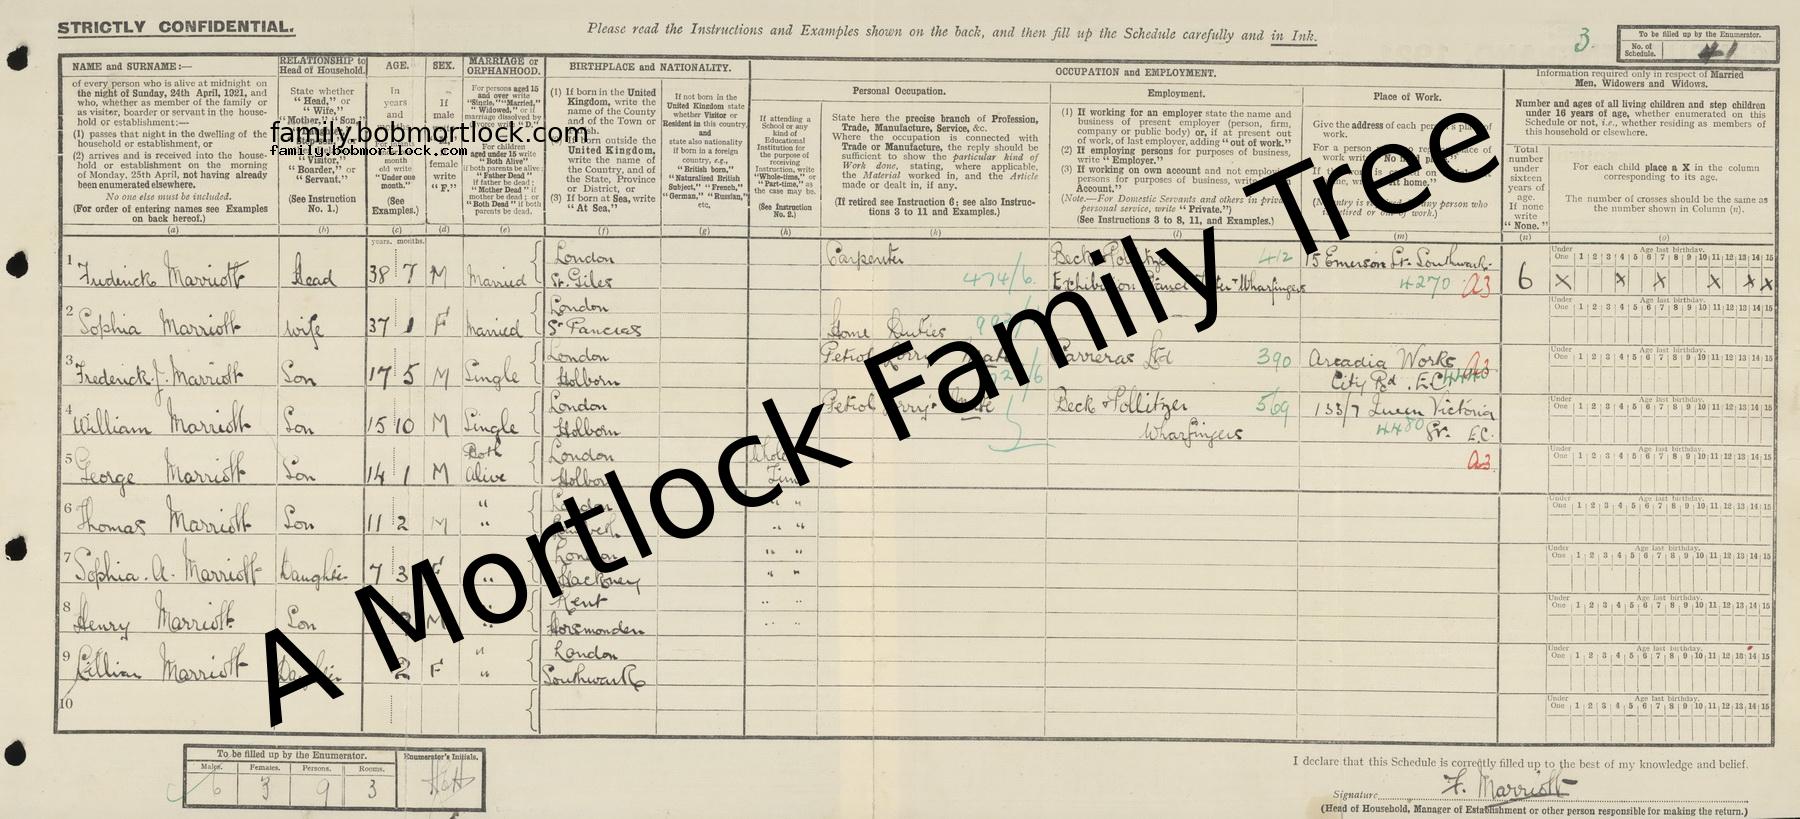 STRICTLY CONFIDENTIAL.
Please read the Instructions and Examples shown on the back, and then fill up the Schedule carefully and in Ink.
3.
To be filled up by the Enumerator.
No. of Schedule. 41
NAME and SURNAME:—
of every person who is alive at midnight on
the night of Sunday, 24th April, 1921, and
who, whether as member of the family or
as visitor, boarder or servant in the house-
hold or establishment:—
(1) passes that night in the dwelling of the
household or establishment, or
(2) arrives and is received into the house-
hold or establishment on the morning
of Monday, 25th April, not having already
been enumerated elsewhere.
No one else must be included.
(For order of entering names see Examples
on back hereof.)
(a)
RELATIONSHIP to
Head of Household.
State whether
"Head," or
"Wife,"
"Visitor,"
"Boarder," or
"Servant."
(See Instruction
No. 1.)
(b)
AGE.
In
years
and
"Under
one
month."
(See
Examples.)
(c)
SEX.
If
male
write
female
write
"F."
(d)
MARRIAGE or
ORPHANHOOD.
For persons aged 15
and over write
(e)
BIRTHPLACE and NATIONALITY.
(1) If born in the United
Kingdom, write the
name of the County
and of the Town or
(2) If born outside the
United Kingdom,
write the name of
the Country, and of
the State, Province
or District, or
(3) If born at Sea, write
"At Sea."
(f)
If not born in the
United Kingdom state
whether Visitor or
Resident in this country,
and
state also nationality
if born in a foreign
country, e.g.,
"British born,"
"Naturalised British
Subject," "French,"
"German," "Russian,"
etc.
(g)
OCCUPATION and EMPLOYMENT.
Personal Occupation.
If attending a
School or any
kind of
Educational
Institution for the
purpose of
receiving
Instruction, write
"Whole-time," or
"Part-time," as
the case may be.
(See Instruction
No. 2.)
(h)
State here the precise branch of Profession,
Trade, Manufacture, Service, &c.
Where the occupation is connected with
Trade or Manufacture, the reply should be
sufficient to show the particular kind of
Work done, stating, where applicable,
the Material worked in, and the Article
made or dealt in, if any.
(If retired see Instruction 6; see also Instruc-
tions 3 to 11 and Examples.)
(k)
Employment.
(1) If working for an employer state the name and
business of present employer (person, firm,
company or public body) or, if at present out
of work, of last employer, adding "out of work."
(2) If employing persons for purposes of business,
write "Employer."
(3) If working on own account and not employing
persons for purposes of business, write
Account."
(Note.—For Domestic Servants and others in private
personal service, write "Private.")
(See Instructions 3 to 8, 11, and Examples.)
(l)
Place of Work.
Give the address of each person's place of
work.
(m)
Information required only in respect of Married
Men, Widowers and Widows.
Number and ages of all living children and step children
under 16 years of age, whether enumerated on this
Schedule or not, i.e., whether residing as members of
this household or elsewhere.
Total
number
under
sixteen
years of
age.
If none
write
"None."
(n)
For each child place a X in the column
corresponding to its age.
The number of crosses should be the same as
the number shown in Column (n).
(o)
family.bobmortlock.com
family.bobmortlock.com
A Mortlock Family Tree
years. months.
Under One Age last birthday. 1 2 3 4 5 6 7 8 9 10 11 12 13 14 15
1 Frederick Marriott Head 38 7 M Married London St. Giles Carpenter 474/6. Beck & Pollitzer 412 15 Emerson St. Southwark. 4270 a3 6 X X X X X X
2 Sophia Marriott wife 37 1 F Married London St Pancras Home Duties
3 Frederick. J. Marriott Son 17 5 M Single London Holborn Petrol Lorry Mate Carreras Ltd 390 Arcadia Works City Rd. E.C.
4 William Marriott Son 15 10 M Single London Holborn Petrol Lorry Mate Beck & Pollitzer Wharfingers 569 133/7 Queen Victoria St. E.C. 4480
5 George Marriott Son 14 1 M Both Alive London Holborn Whole Time a3.
6 Thomas Marriott Son 11 2 M " " London " "
7 Sophia. A. Marriott Daughter 7 3 F " London Hackney " "
8 Henry Marriott Son M " Kent Horsmonden " "
9 Lillian Marriott Daughter 2 F " London Southwark
10
To be filled up by the Enumerator.
Males. Females. Persons. Rooms.
6 3 9 3
Enumerator's Initials.
I declare that this Schedule is correctly filled up to the best of my knowledge and belief.
Signature F. Marriott
(Head of Household, Manager of Establishment or other person responsible for making the return.)